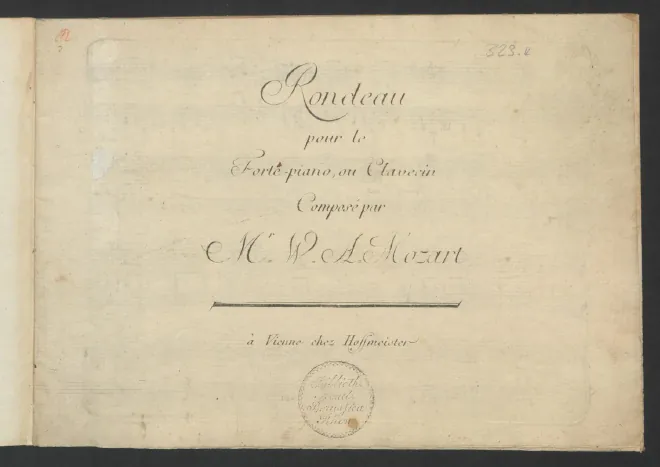 323.
Rondeau
pour le
Forte-piano, ou Clavecin
Composé par
Mr. W. A. Mozart
à Vienne chez Hoffmeister